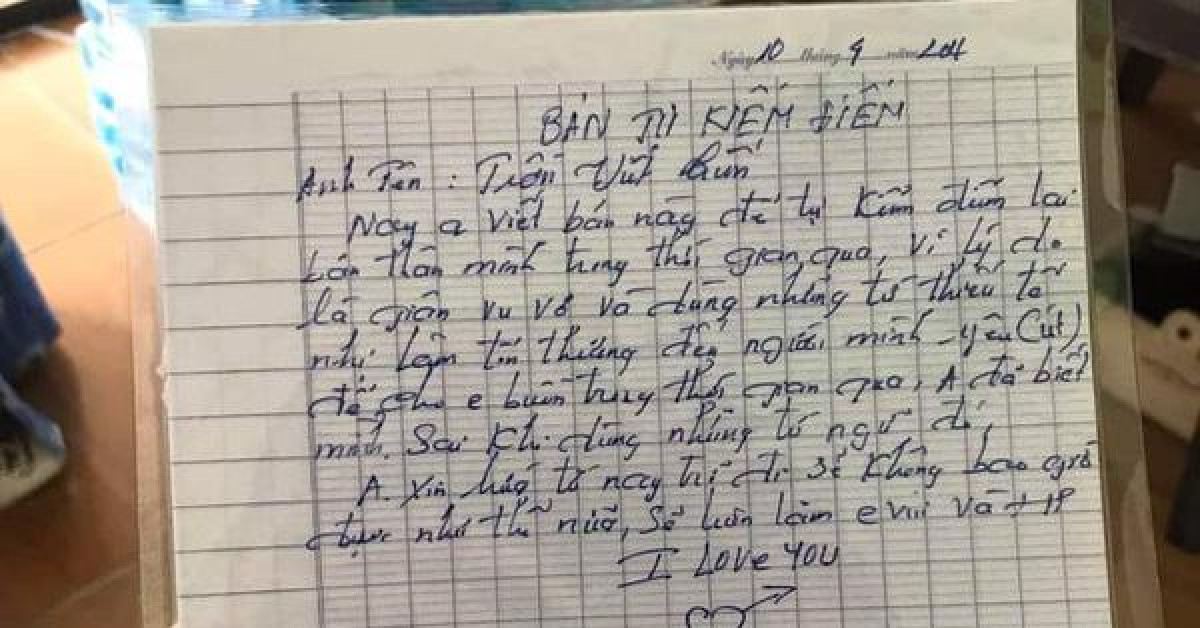 Ngày 10 tháng 9 năm
BẢN TỰ KIỂM ĐIỂM
Anh Tên : Trần
Nay a viết bản này để tự kiểm điểm lại
bản thân mình trong thời gian qua, vì lý do
là giận vu vơ và dùng những từ thiếu tế
nhị làm tổn thương đến người mình yêu (út)
để cho e buồn trong thời gian qua, A đã biết
mình sai khi dùng những từ ngữ đó,
A. xin hứa từ nay trở đi sẽ không bao giờ
được như thế nữa, sẽ luôn làm e vui và + HP
I LOVE YOU